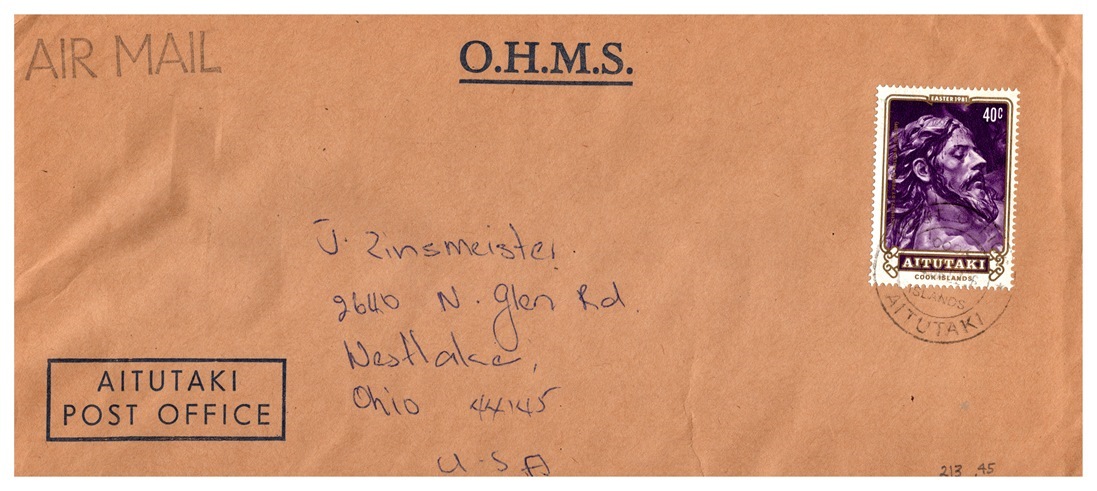 AIR MAIL
O.H.M.S.
EASTER 1981
40c
AITUTAKI
COOK ISLANDS
ISLANDS
AITUTAKI
J. Zinsmeister
2640 N. Glen Rd.
Westlake,
Ohio 44145
U.S.A
AITUTAKI
POST OFFICE
213 .45